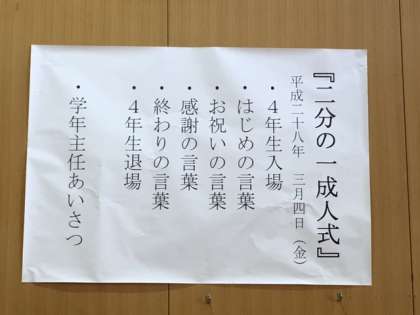 『二分の一成人式』
平成二十八年 三月四日（金）
・４年生入場
・はじめの言葉
・お祝いの言葉
・感謝の言葉
・終わりの言葉
・４年生退場
・学年主任あいさつ